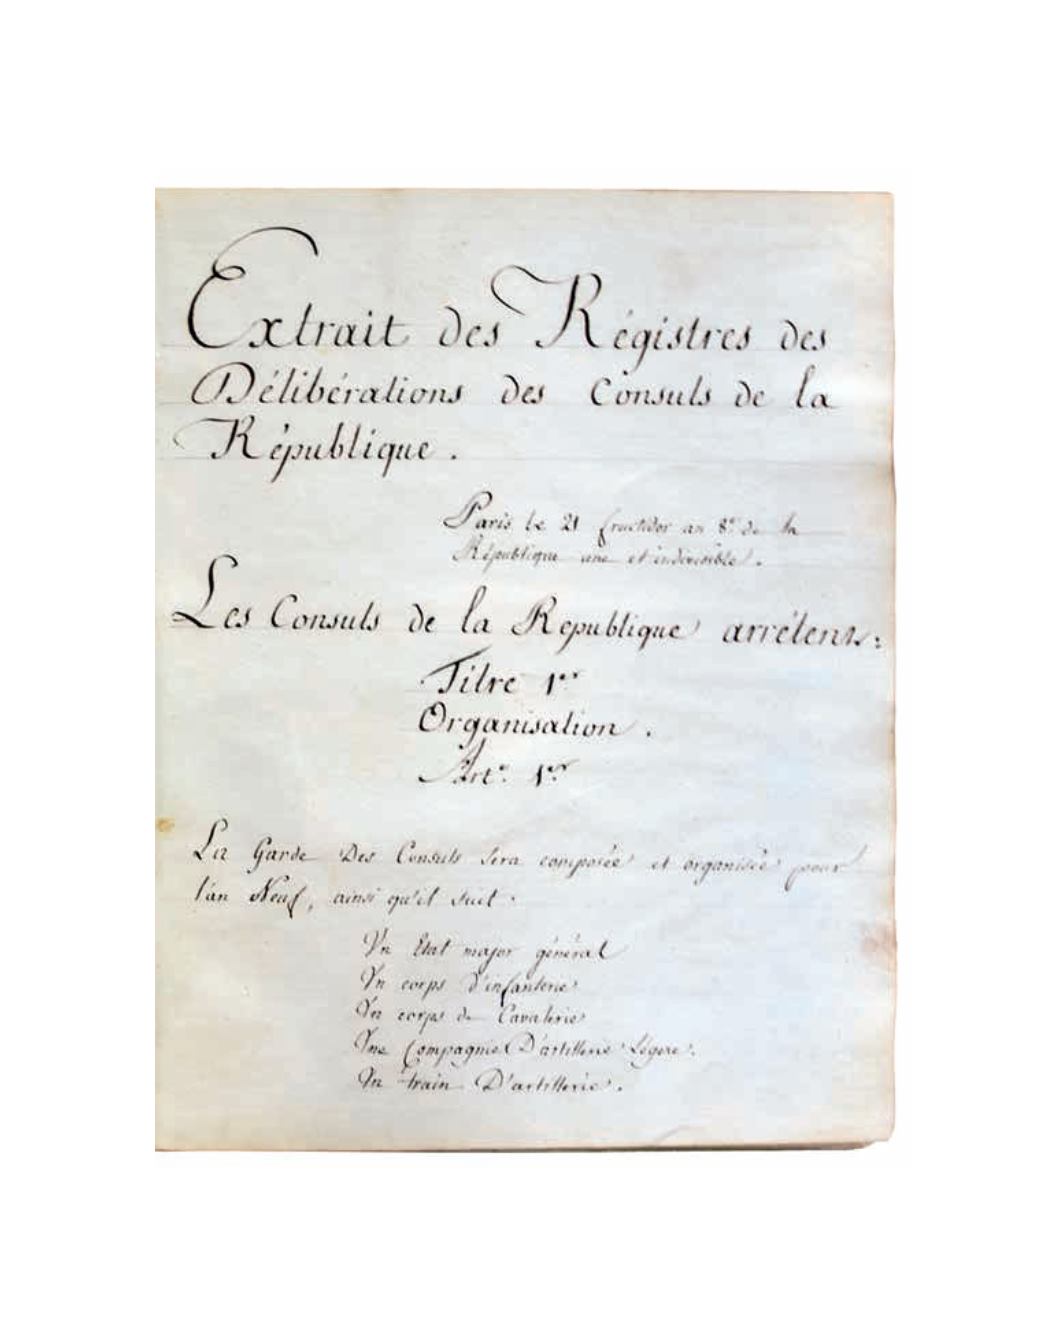 Extrait des Régistres des
Délibérations des Consuls de la
République.
Paris le 21 fructidor an 8.e de la
République une et indivisible.
Les Consuls de la Republique arrêtent:
Titre 1er
Organisation.
Art.e 1er
La Garde Des Consuls sera composée et organisée pour
l'an Neuf, ainsi qu'il suit.
Un Etat major général
Un corps d'infanterie
Un corps de Cavalerie
Une Compagnie D'artillerie Légere.
Un train D'artillerie.